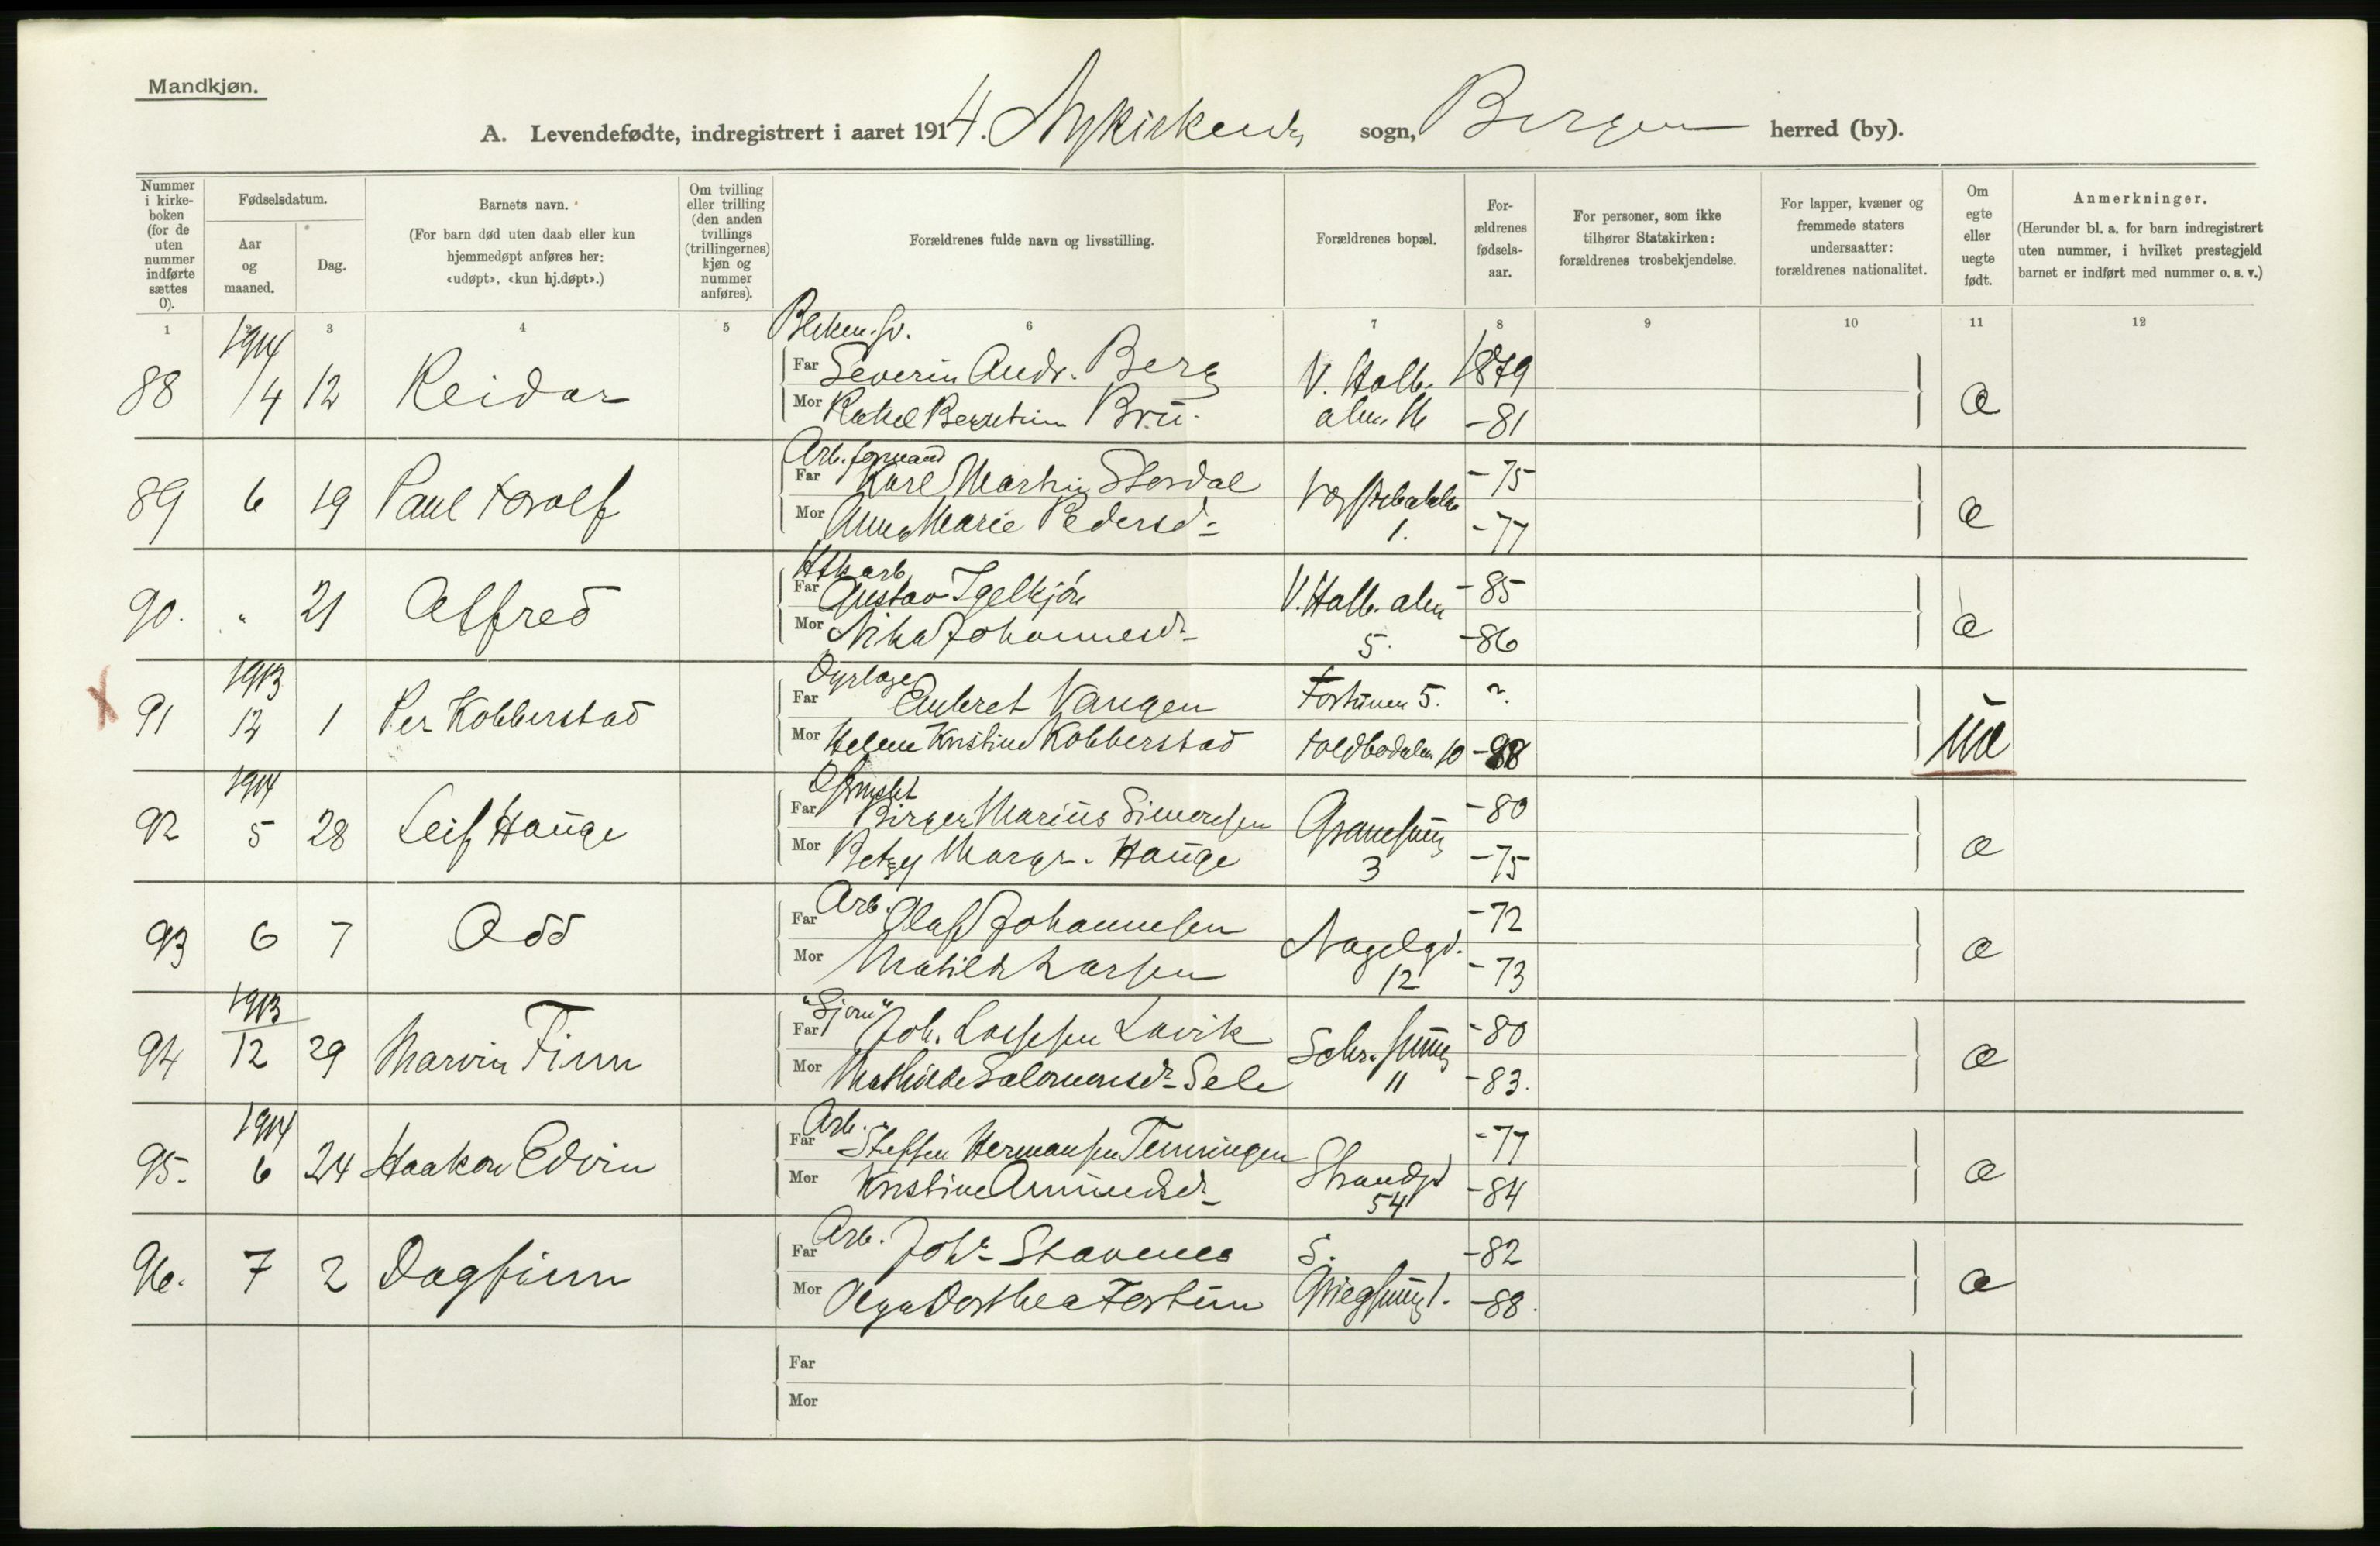 Mandkjøn.
A. Levendefødte, indregistrert i aaret 1914. Nykirkens sogn, Bergen herred (by).
Nummer i kirke-boken (for de uten nummer indførte sættes 0).
Fødselsdatum.
Aar og maaned.
Dag.
Barnets navn.
(For barn død uten daab eller kun hjemmedøpt anføres her: «udøpt», «kun hj.døpt».)
Om tvilling eller trilling (den anden tvillings (trillingernes) kjøn og nummer anføres).
Forældrenes fulde navn og livsstilling.
Forældrenes bopæl.
For-ældrenes fødsels-aar.
For personer, som ikke tilhører Statskirken: forældrenes trosbekjendelse.
For lapper, kvæner og fremmede staters undersaatter: forældrenes nationalitet.
Om egte eller uegte født.
Anmerkninger.
(Herunder bl. a. for barn indregistrert uten nummer, i hvilket prestegjeld barnet er indført med nummer o. s. v.)
1 2 3 4 5 6 7 8 9 10 11 12
1914
88 /4 12 Reidar
Far Severin Andr. Berg V. Holb. 1879
Mor Rakel Bru. alm. -81
Arb. formand
89 6 19 Paul Torolf
Far Karl Martin Stordal -75
Mor Anna Marie Pedersd. 1. -77
90. " 21 Alfred
Far Gustav Igelkjøn V. Holb. alm -85
Mor Johannesd. 5. -86
1913
Dyrlæge
X 91 12 1 Per Kobberstad
Far Vangen Fortunen 5. ?
Mor Helene Kristine Kobberstad Toldbodalm 10 -88
ue
1914
92 5 28 Leif Hauge
Far Birger Marius Simonsen -80
Mor Betzy Margr. Hauge 3 -75
Arb.
93 6 7 Odd
Far Olaf Johannesen Nagelgd. -72
Mor Matilde Larsen 12 -73
1913
"Sjøm"
94 12 29 Marvin Finn
Far Joh. Lassesen Lavik -80
Mor Mathilde Salomonsdr. Sele 11 -83.
1914
Arb.
95. 6 24 Haakon Edvin
Far Steffen Hermansen Tenningen Strandgd -77
Mor Kristine Amundsdr. 54 -84
Arb.
96. 7 2 Dagfinn
Far Johs. Stavenes S. -82
Mor Olga Dorthea Fortun Griegsmug 1. -88.
Far
Mor